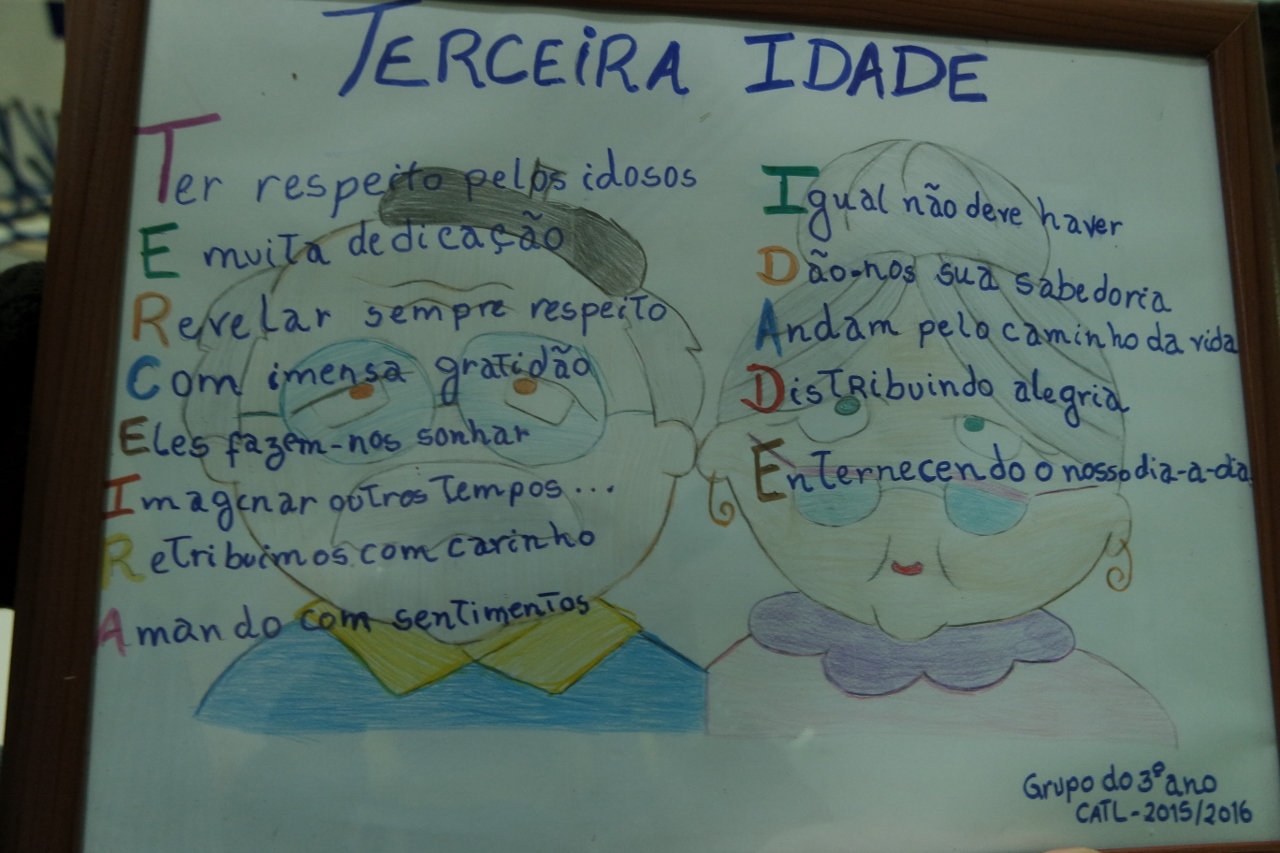 TERCEIRA IDADE
Ter respeito pelos idosos
E muita dedicação
Revelar sempre respeito
Com imensa gratidão
Eles fazem-nos sonhar
Imaginar outros tempos...
Retribuimos com carinho
Amando com sentimentos
Igual não deve haver
Dão-nos sua sabedoria
Andam pelo caminho da vida
Distribuindo alegria
Enternecendo o nosso dia-a-dia
Grupo do 3º ano
CATL - 2015/2016